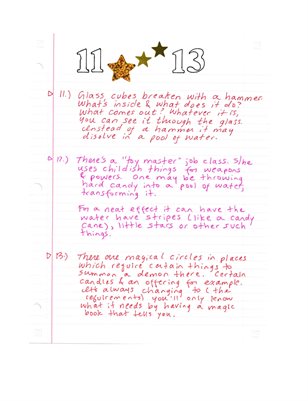 11 13
11.) Glass cubes broken with a hammer.
What's inside & what does it do?
What comes out? Whatever it is,
you can see it through the glass.
Instead of a hammer it may
disolve in a pool of water.
12.) There's a "toy master" job class. S/he
uses childish things for weapons
& powers. One may be throwing
hard candy into a pool of water,
transforming it.
For a neat effect it can have the
water have stripes (like a candy
cane), little stars or other such
things.
13.) There are magical circles in places
which require certain things to
summon a demon there. Certain
candles & an offering for example.
It's always changing to (the
requirements) you'll only know
what it needs by having a magic
book that tells you.